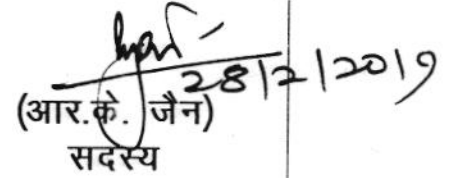 28/2/2019
(आर.के. जैन)
सदस्य